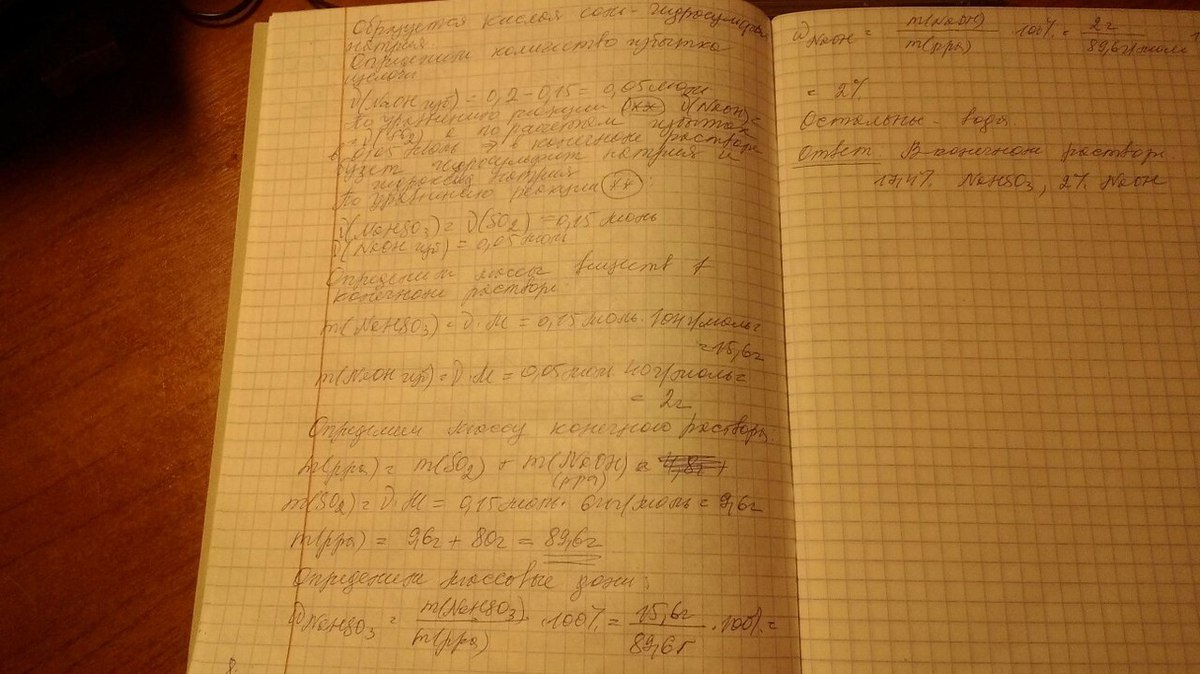 Образуется кислая соль - гидросульфит
натрия
Определим количество избытка
щелочи
ν(NaOH изб) = 0,2 - 0,15 = 0,05 моль
По уравнению реакции (**) ν(NaOH) =
= ν(SO2)
0,05 моль => в конечном растворе
будет гидросульфит натрия и
гидроксид натрия
По уравнению реакции (**):
ν(NaHSO3) = ν(SO2) = 0,15 моль
ν(NaOH изб) = 0,05 моль
Определим массы веществ в
конечном растворе:
m(NaHSO3) = ν·M = 0,15 моль · 104 г/моль =
= 15,6 г
m(NaOH изб) = ν·M = 0,05 моль 40 г/моль =
= 2 г
Определим массу конечного раствора:
m(рра) = m(SO2) + m(NaOH) =
(рра)
m(SO2) = ν·M = 0,15 моль · 64 г/моль = 9,6 г
m(рра) = 9,6 г + 80 г = 89,6 г
Определим массовые доли:
ω NaHSO3 = m(NaHSO3) / m(рра) · 100% = 15,6 г / 89,6 г · 100% =
ω NaOH = m(NaOH) / m(рра) 100% = 2 г / 89,6 г/моль
= 2%
Остальные - вода
Ответ. В конечном растворе
17,4% NaHSO3, 2% NaOH